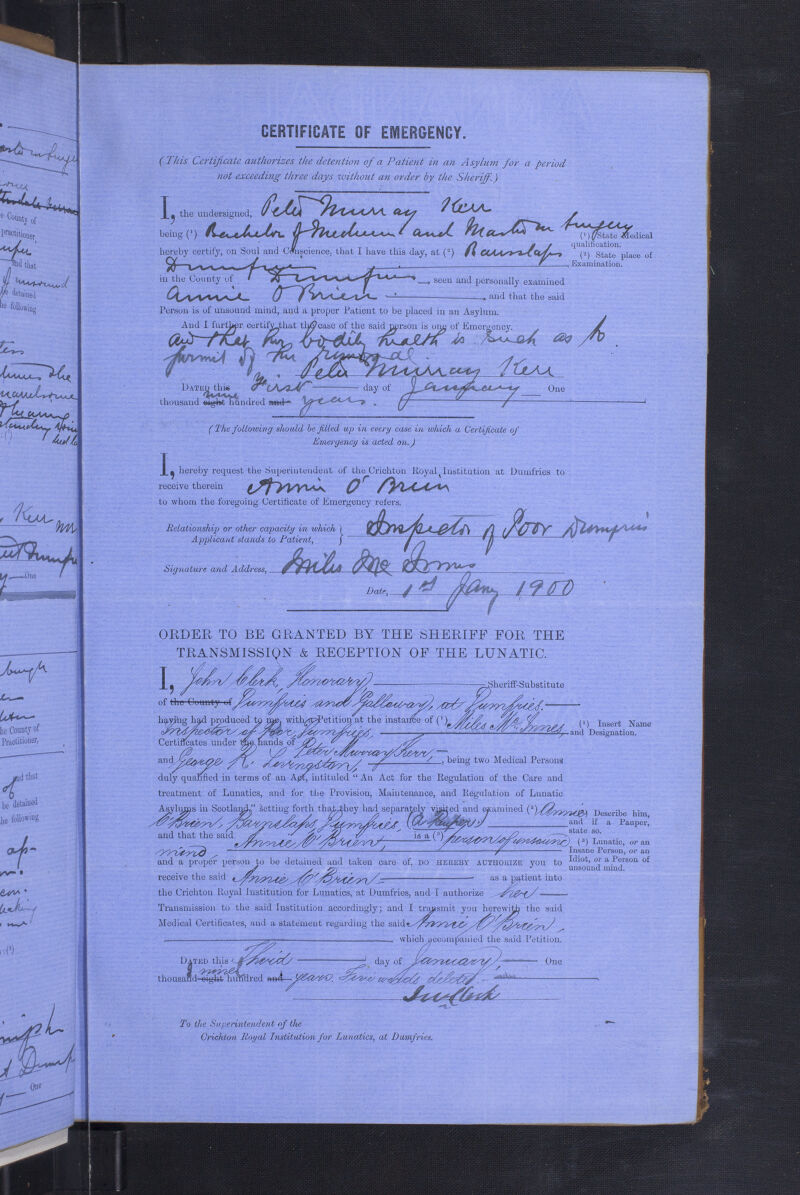 CERTIFICATE OF EMERGENCY.
(This Certificate authorizes the detention of a Patient in an Asylum for a period
not exceeding three days without an order by the Sheriff.)
I, the undersigned, Peter Murray Kerr
being (¹) Bachelor of Medicine and Master in Surgery
(¹) State Medical
qualification.
hereby certify, on Soul and Conscience, that I have this day, at (²) Barnslaps
(²) State place of
Examination.
Dumfries
in the County of Dumfries, seen and personally examined
Annie O'Brien and that the said
Person is of unsound mind, and a proper Patient to be placed in an Asylum.
And I further certify that the case of the said person is one of Emergency.
and that her bodily health is such as to
permit of her removal
Peter Murray Kerr
DATED this First day of January One
thousand eight nine hundred and years.
(The following should be filled up in every case in which a Certificate of
Emergency is acted on.)
I, hereby request the Superintendent of the Crichton Royal Institution at Dumfries to
receive therein Annie O'Brien
to whom the foregoing Certificate of Emergency refers.
Relationship or other capacity in which
Applicant stands to Patient, } Inspector of Poor Dumfries
Signature and Address, Miles McInnes
Date, 1st Jany 1900
ORDER TO BE GRANTED BY THE SHERIFF FOR THE
TRANSMISSION & RECEPTION OF THE LUNATIC.
I, John Clerk, Honorary Sheriff-Substitute
of the County of Dumfries and Galloway, at Dumfries.
having had produced to me, with a Petition at the instance of (¹) Miles McInnes
(¹) Insert Name
and Designation.
Inspector of Poor, Dumfries,
Certificates under the hands of Peter Murray Kerr,
and George R. Livingston, being two Medical Persons
duly qualified in terms of an Act, intituled "An Act for the Regulation of the Care and
treatment of Lunatics, and for the Provision, Maintenance, and Regulation of Lunatic
Asylums in Scotland," setting forth that they had separately visited and examined (²) Annie
O'Brien, Barnslaps, Dumfries, (a Pauper)
Describe him,
and if a Pauper,
state so.
and that the said Annie O'Brien, is a (³) person of unsound
mind,
(³) Lunatic, or an
Insane Person, or an
Idiot, or a Person of
unsound mind.
and a proper person to be detained and taken care of, DO HEREBY AUTHORIZE you to
receive the said Annie O'Brien as a patient into
the Crichton Royal Institution for Lunatics, at Dumfries, and I authorize her
Transmission to the said Institution accordingly; and I transmit you herewith the said
Medical Certificates, and a statement regarding the said Annie O'Brien,
which accompanied the said Petition.
DATED this Third day of January, One
thousand eight nine hundred and years. Five words deleted
Jn Clerk
To the Superintendent of the
Crichton Royal Institution for Lunatics, at Dumfries.